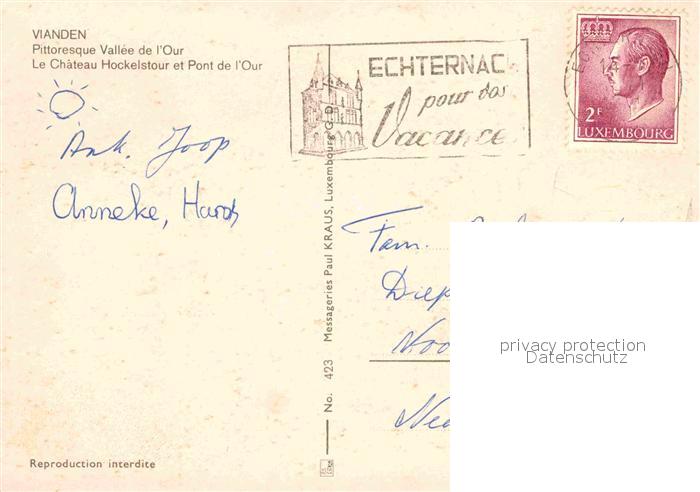 VIANDEN
Pittoresque Vallée de l'Our
Le Château Hockelstour et Pont de l'Our
Ank. Joop
Anneke,
ECHTERNAC
pour vos
Vacance
2F
LUXEMBOURG
No. 423 Messageries Paul KRAUS, Luxembourg G. D.
Fam.
Diep
Noo
Ned
privacy protection
Datenschutz
Reproduction interdite